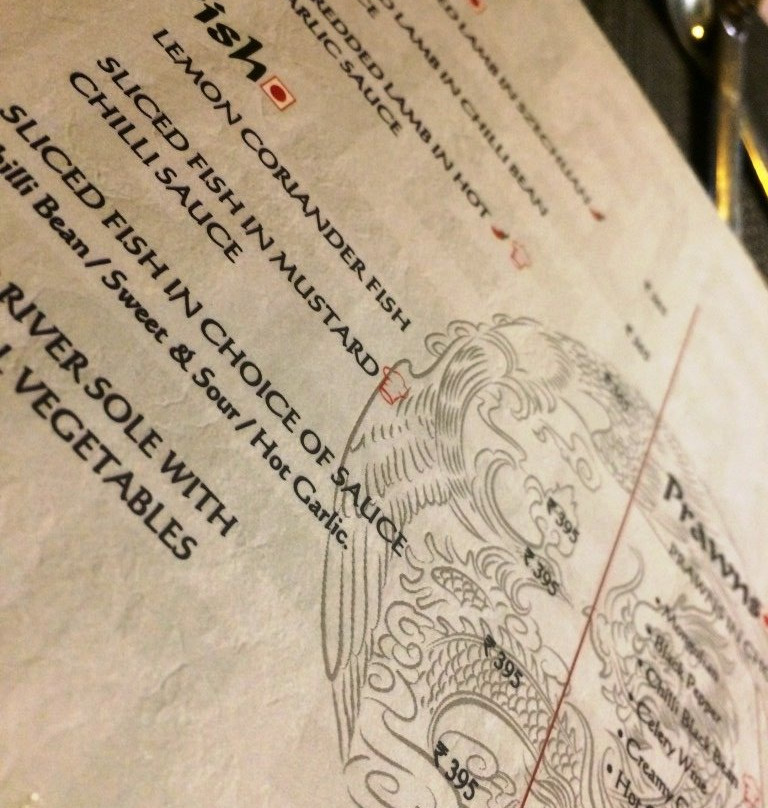 LAMB IN SZECHUAN
LAMB IN CHILLI BEAN
LAMB IN HOT
SAUCE
LEMON CORIANDER FISH
SLICED FISH IN MUSTARD
CHILLI SAUCE
SLICED FISH IN CHOICE OF SAUCE
Bean / Sweet & Sour / Hot Garlic.
RIVER SOLE WITH
VEGETABLES
₹ 395
₹ 395
₹ 395
₹ 395
Prawns
PRAWNS IN
• Mongolian
• Black Pepper
• Chilli Black Bean
• Celery Wine
• Creamy